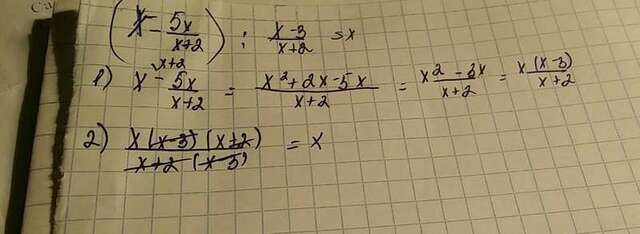 (x - 5x/x+2) : x-3/x+2 = x
1) x^x+2 - 5x/x+2 = x²+2x-5x/x+2 = x²-3x/x+2 = x(x-3)/x+2
2) x(x-3)(x+2)/x+2(x-3) = x